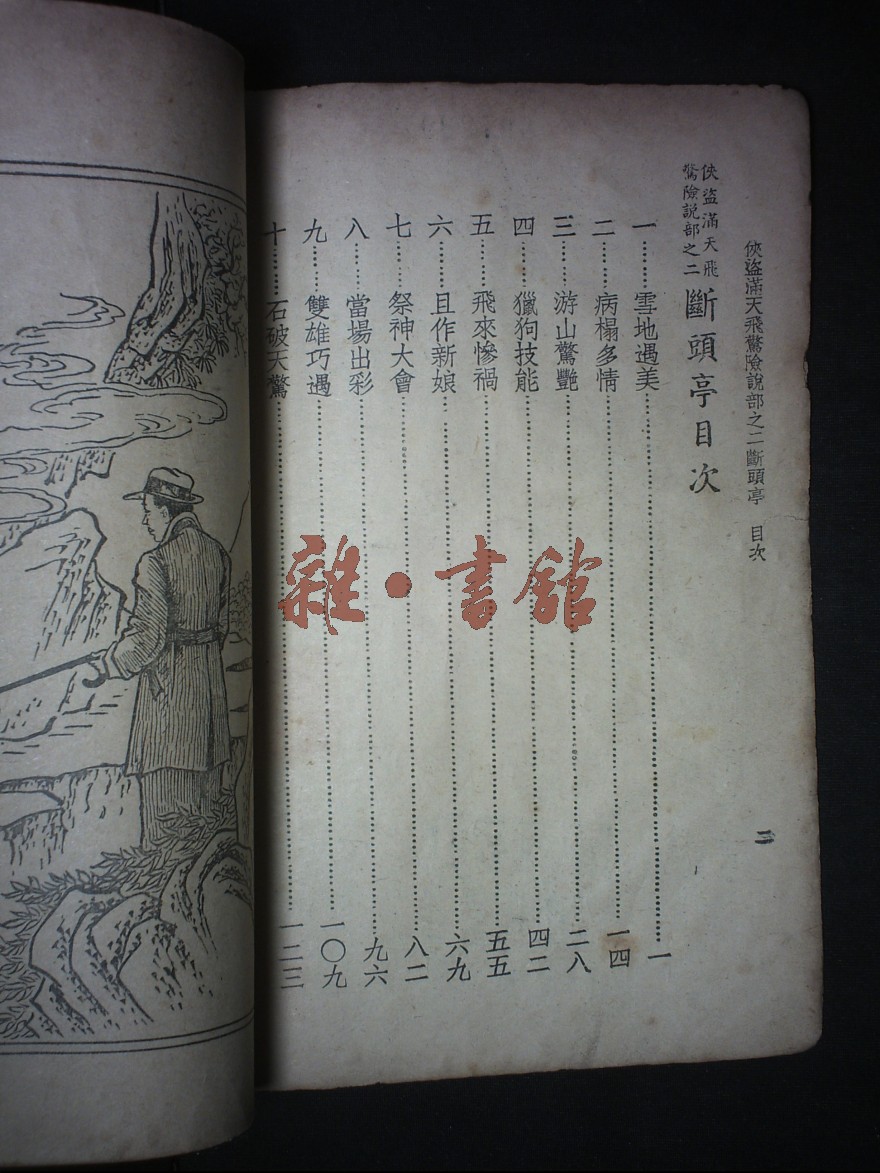 俠盜滿天飛驚險說部之二斷頭亭　目次
二
俠盜滿天飛
驚險說部之二
斷頭亭目次
一………雪地遇美………一
二………病榻多情………一四
三………游山驚艷………二八
四………獵狗技能………四二
五………飛來慘禍………五五
六………且作新娘………六九
七………祭神大會………八二
八………當場出彩………九六
九………雙雄巧遇………一〇九
十………石破天驚………一二三
雜·書館